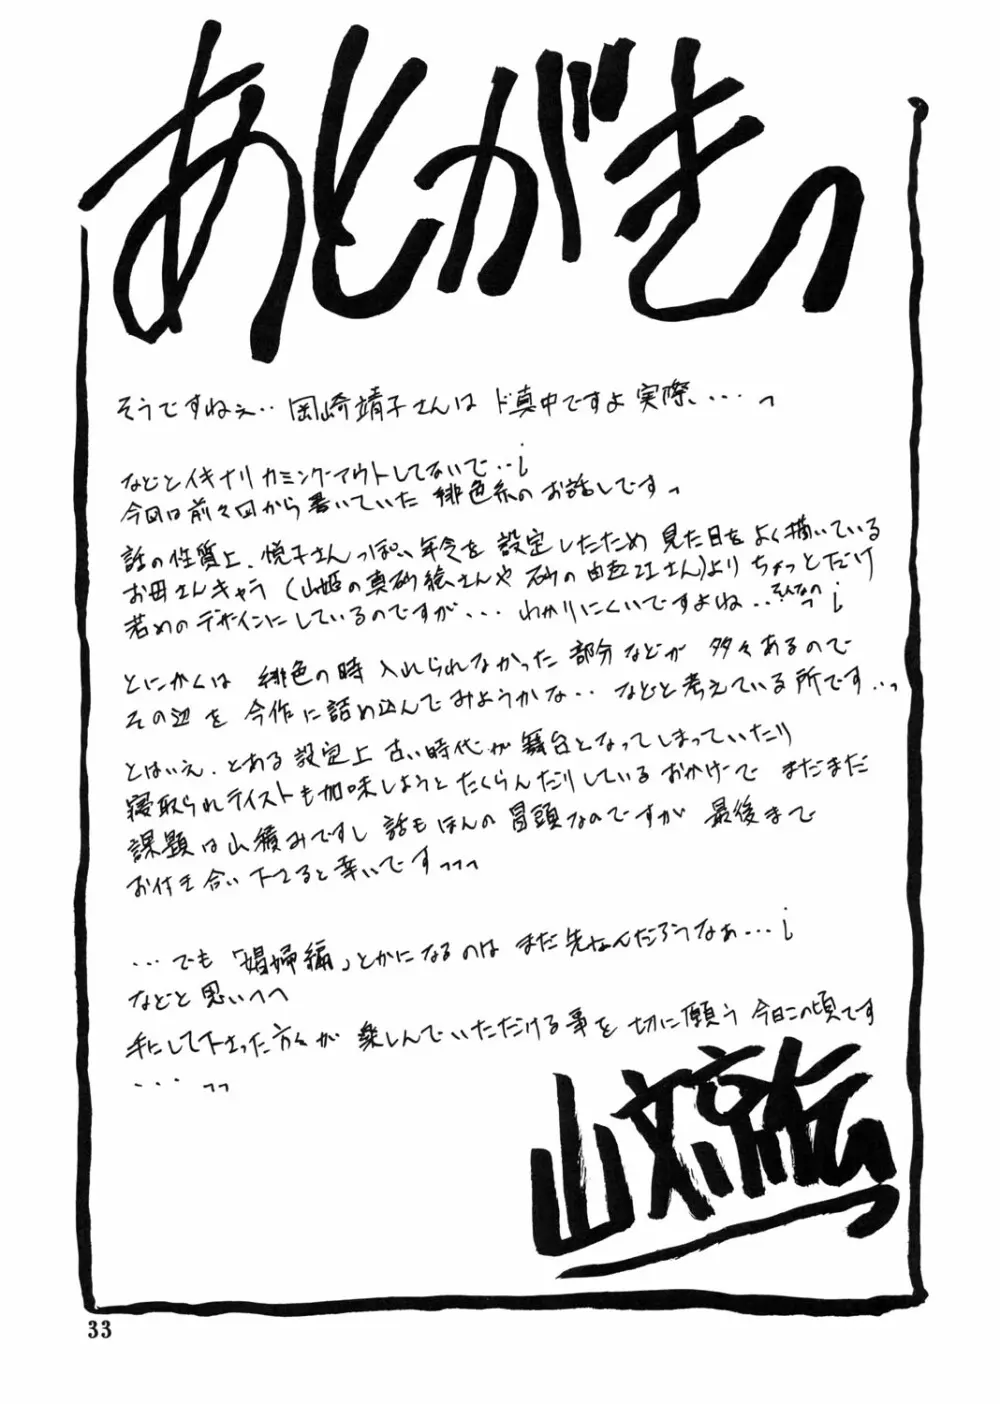 あとがきっ
そうですねぇ‥ 岡崎靖子さんは ド真中ですよ実際、・・・っ
などとイキナリ カミングアウトしてないで‥¡
今回は前々回から書いていた 緋色系の お話しですっ
話の性質上、悦子さんっぽい年令を 設定したため 見た目を よく描いている
お母さんキャラ (山姫の真砂絵さんや 砂の由起江さん)より ちょっとだけ
若めの デザインに しているのですが、・・・ わかりにくいですよね‥そんなの¡
とにかくは 緋色の時 入れられなかった 部分などが 多々あるので
その辺を 今作に詰め込んでみようかな‥ などと考えている所です‥っ
とはいえ、とある設定上 古い時代が 舞台となってしまっていたり
寝取られテイストも加味しようと たくらんだりしている おかげで まだまだ
課題は山積みですし 話もほんの 冒頭なのですが 最後まで
お付き合い下さると幸いですっっっ
・・・でも 「娼婦編」とかになるのは まだ先なんだろうなぁ・・・¡
などと思いつつ
手にして下さった方々が 楽しんでいただける事を 切に願う 今日この頃です
・・・っっ
山文京伝
33